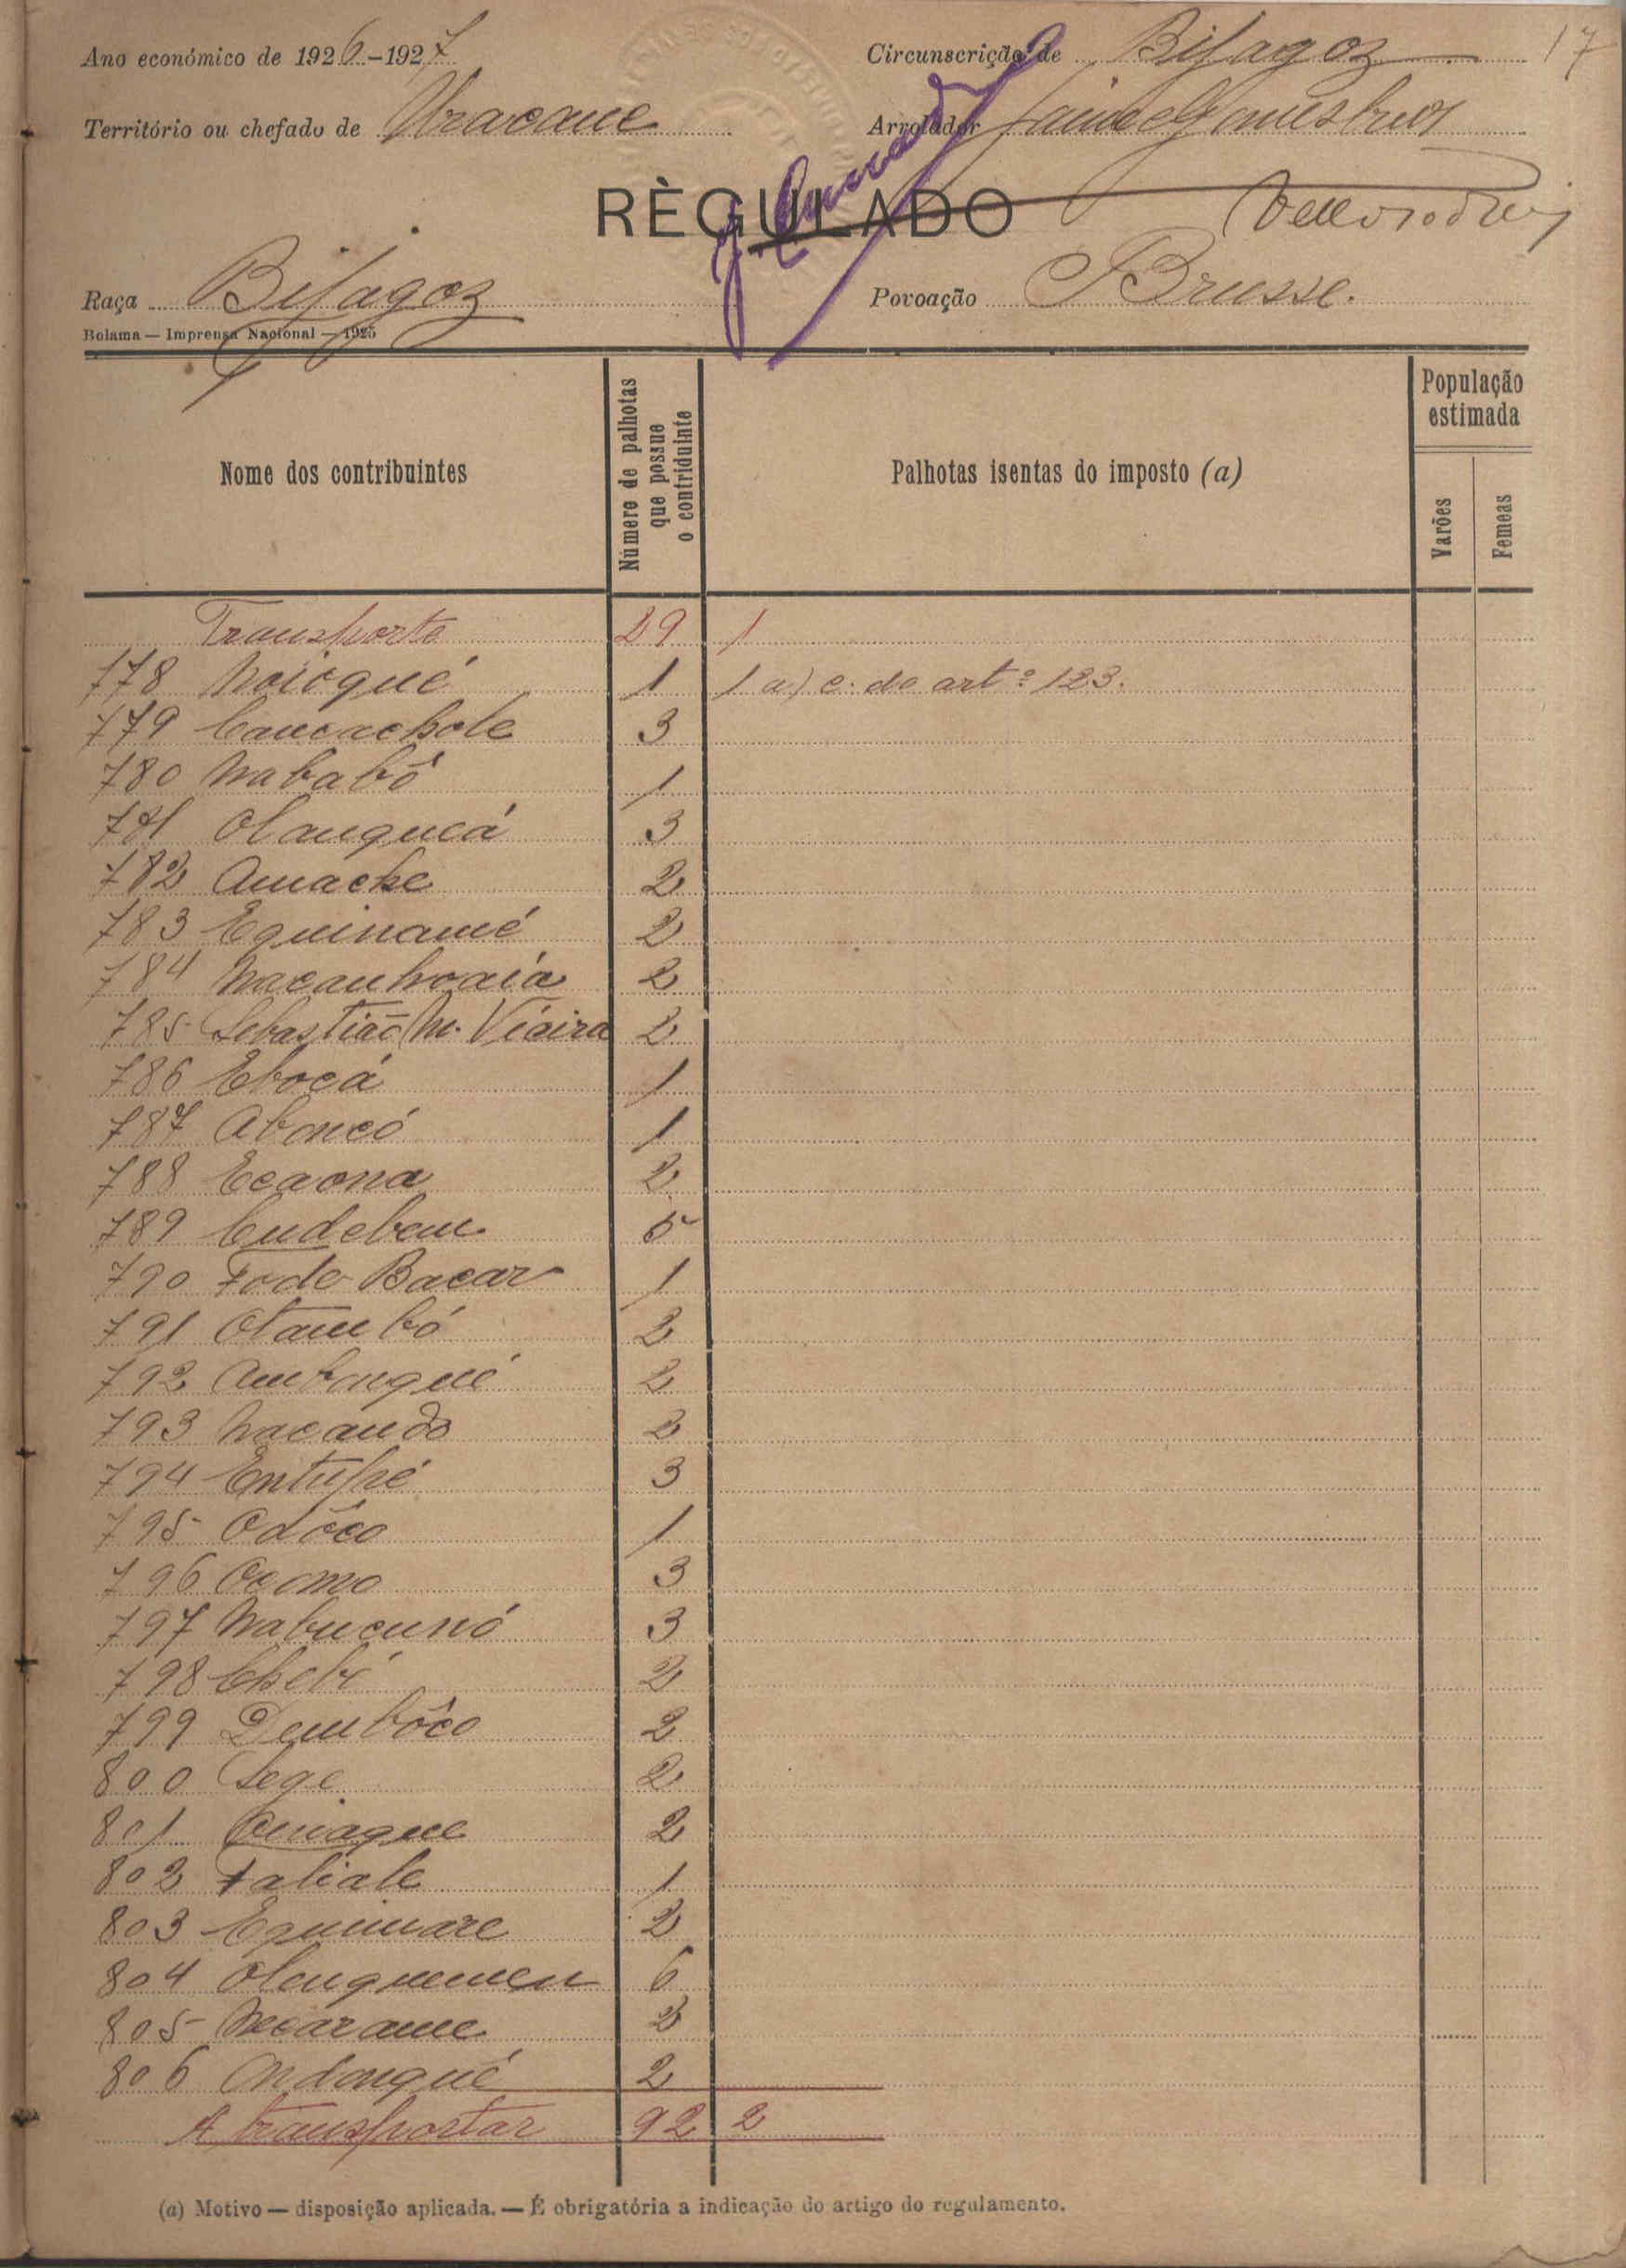 17
Ano económico de 1926-1927 Circunscrição de Bijagoz
Território ou chefado de Uracane Arrolador
RÈGULADO
Raça Bijagoz Povoação Brusse.
Bolama — Imprensa Nacional — 1925
Nome dos contribuintes
Número de palhotas que possue o contriduinte
Palhotas isentas do imposto (a)
População estimada
Varões
Femeas
Transporte 29 1
778 Noioqué 1 1 a) e. do artº 123.
779 Cancachole 3
780 Nababô 1
781 Olauquecá 3
782 Amache 2
783 Equinamé 2
784 Nacanhoaia 2
785 Sebastião M. Vieira 2
786 Ebocá 1
787 Aboncó 1
788 Ecaona 2
789 Cudebem 5
790 Fode Bacar 1
791 Otambó 2
792 Ambonqué 2
793 Nacando 2
794 Entupé 3
795 Odôco 1
796 Ocomo 3
797 Nabucunó 3
798 Chebi 2
799 Dembôco 2
800 Sege 2
801 2
802 Faliale 1
803 Equimare 2
804 6
805 Necarame 2
806 Ondonqué 2
A transportar 92 2
(a) Motivo — disposição aplicada. — É obrigatória a indicação do artigo do regulamento.